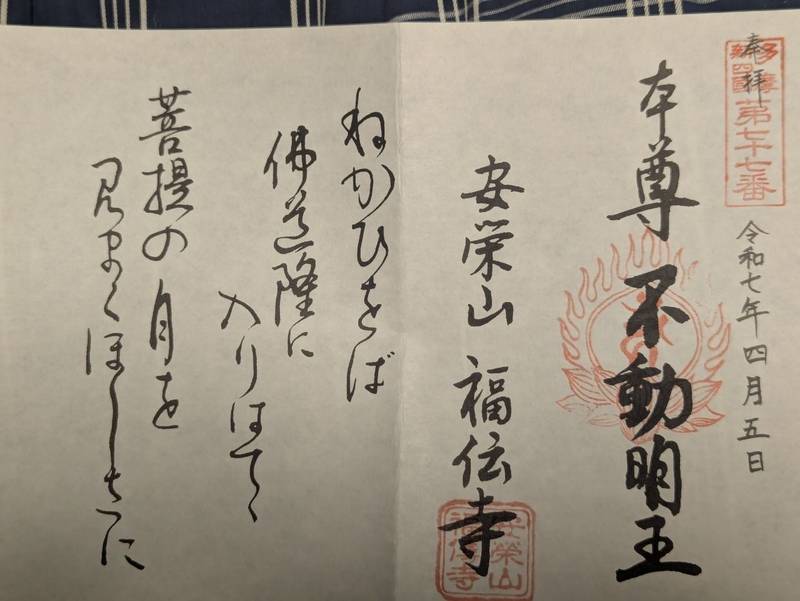 奉拝
多摩
新四國
第七十七番
令和七年四月五日
本尊 不動明王
安栄山 福伝寺
安榮山
福伝寺
ねかひをば
佛道隆に
入りはてゝ
菩提の月を
見まくほしさに